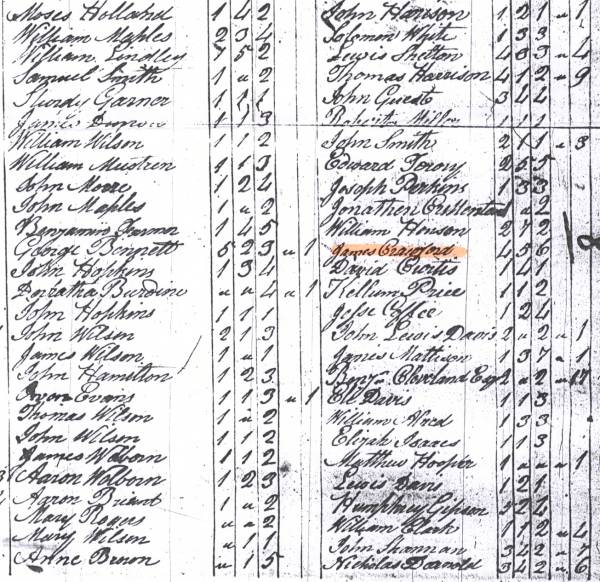 Moses Holland 1 4 2
William Maples 2 3 4
William Lindley 7 5 2
Samuel Smith 1 " 2
Garner 1 1 1
James 1 1 3
William Wilson 1 1 2
William 1 1 3
John Moore 1 2 4
John Maples 1 " 2
Benjamin 1 4 5
George Bennett 5 2 3 " 1
John Hopkins 1 3 4
Burdine " " 4 " 1
John Hopkins 1 1 1
John Wilson 2 1 3
James Wilson 1 " 1
John Hamilton 1 2 3
Evans 1 1 3 " 1
Thomas Wilson 1 " 2
John Wilson 1 1 2
James Wolborn 1 1 2
Aaron Wolborn 1 2 3
Aaron Briant 1 " 2
Mary Rogers " " 2
Mary Wilson " 1 1
Anne Brown " 1 5
John Harrison 1 2 1 " 1
Solomon White 1 3 3
Lewis Shelton 4 3 3 " 4
Thomas Harrison 4 1 2 " 9
John Guest 3 4 4
1 1 1
John Smith 2 1 1 " 3
Edward 2 5 5
Joseph Perkins 1 3 3
Jonathen " 2
William Henson 2 7 2
James Crawford 4 5 6
David Curtis 1 4 1
Kellum Price 1 1 2
Jesse Coffee 1 2 4
John Lewis Davis 2 " 2 " 1
James Mattison 1 3 7 " 1
Benjn Cleveland Esq 2 " 2 " 17
Eli Davis 1 1 3
William 1 3 3
Elijah Isaacs 1 1 3
Matthew Hooper 1 " " " 1
Lewis Davis 1 2 1
Humphrey Gipson 3 2 4
William Clark 1 1 2 " 4
John Shannan 3 4 2 " 7
Nicholas Darnold 3 4 2 " 6